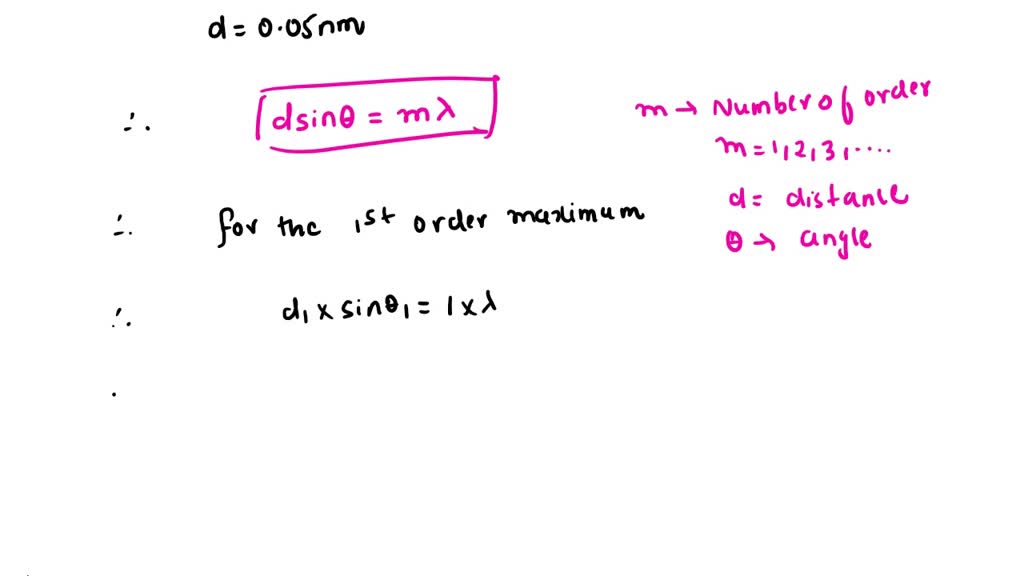 d = 0.05nm
∴ dsinθ = mλ
m → Number of order
m = 1, 2, 3, ....
d = distance
θ → angle
∴ for the 1st order maximum
∴ d₁ x sinθ₁ = 1 x λ